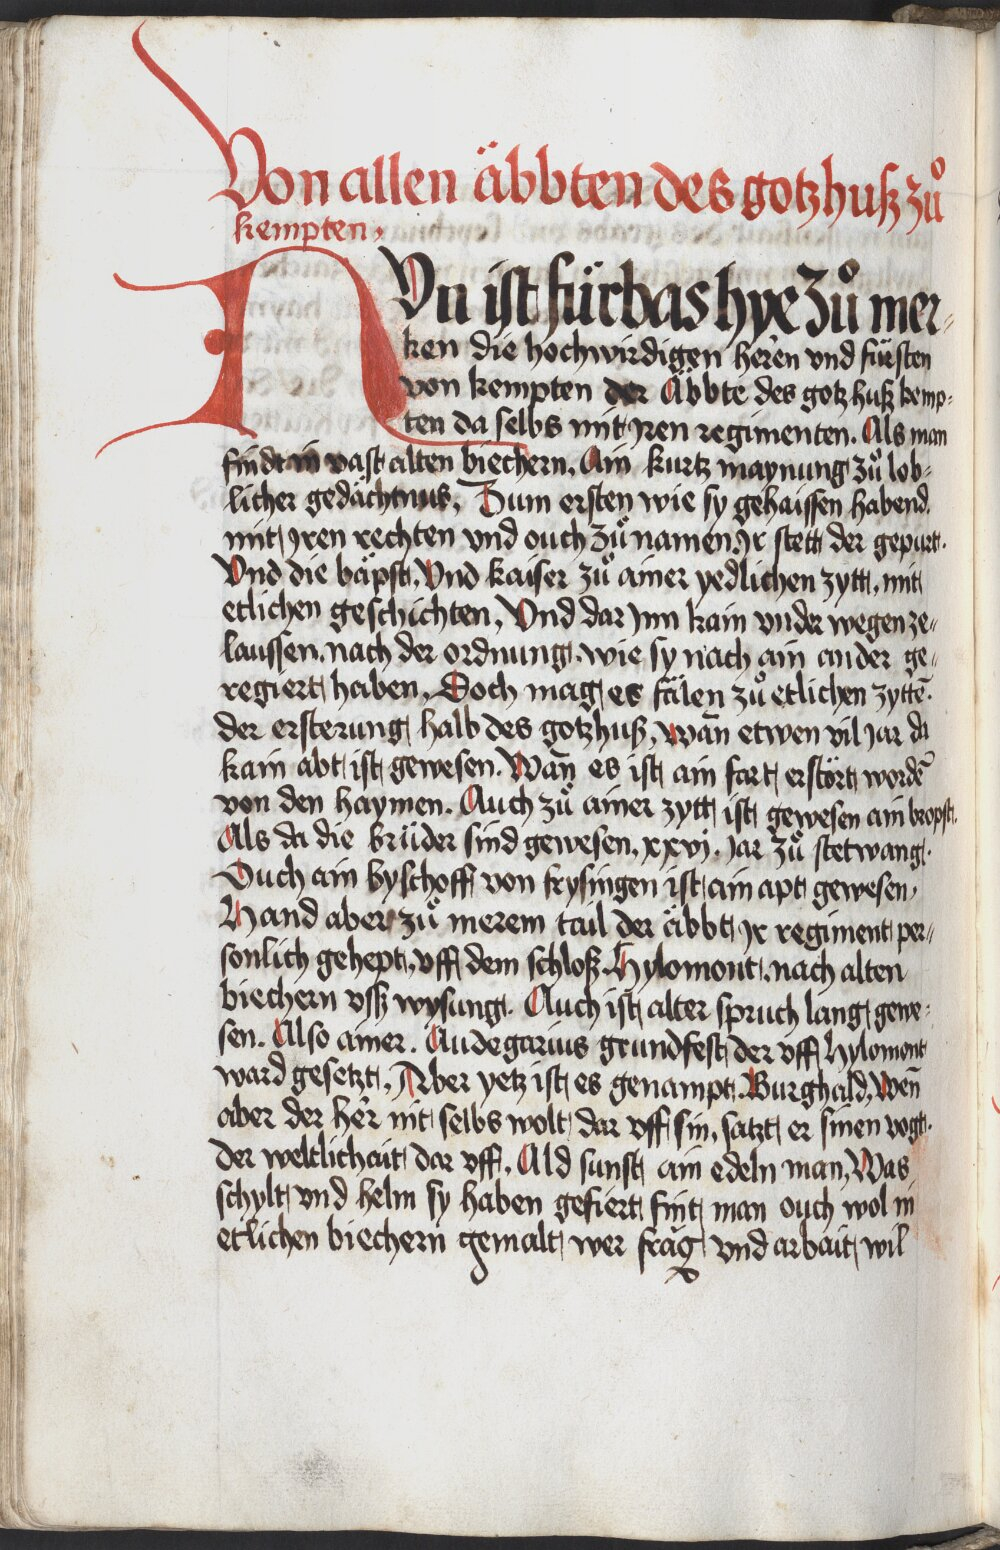 Von allen äbbten des gotzhuß zuͦ
kempten.
NVn ist fürbas hye zuͦ mer-
ken die hochwirdigen heren vnd fürsten
von kempten der Abbte des gotzhuß kemp-
ten da selbs mit jren regimenten. Als man
findt in vast alten biechern. Ain kurtz maynung zuͦ lob-
licher gedächtnus. Zum ersten wie sy gehaissen habend.
mit jren rechten vnd ouch zuͦ namen. jr stett der gepurt.
Vnd die bäpst. Vnd kaiser zuͦ ainer yedlichen zytt. mit
etlichen geschichten. Vnd dar jnn kain vnder wegen ze-
laussen. nach der ordnung. wie sy nach ain ander ge-
regiert haben. Doch mag es fälen zuͦ etlichen zyttē.
der ersterung halb des gotzhuß. wān etwen vil jar da
kain abt ist gewesen. Wān es ist ain fart erstört wordē
von den haymen. Auch zuͦ ainer zytt ist gewesen ain bropst.
Als da die brüder sind gewesen. xxvj. jar zuͦ stetwang.
Ouch ain byschoff von frysingen ist ain apt gewesen.
Hand aber zuͦ merem tail der äbbt jr regiment per-
sonlich gehept. vff dem schloß. Hylomont. nach alten
biechern vsß wysung. Auch ist alter spruch lang gewe-
sen. Also ainer. Audegarius grundfest der vff Hylomont
ward gesetzt. Aber yetz ist es genampt. Burghald. Wen̄
aber der her nit selbs wolt dar vff sin. satzt er sinen vogt.
der weltlichait dar vff. Ald sunst ain edeln man. Was
schylt vnd helm sy haben gefiert fint man ouch wol in
etlichen biechern gemalt wer frag vnd arbait wil